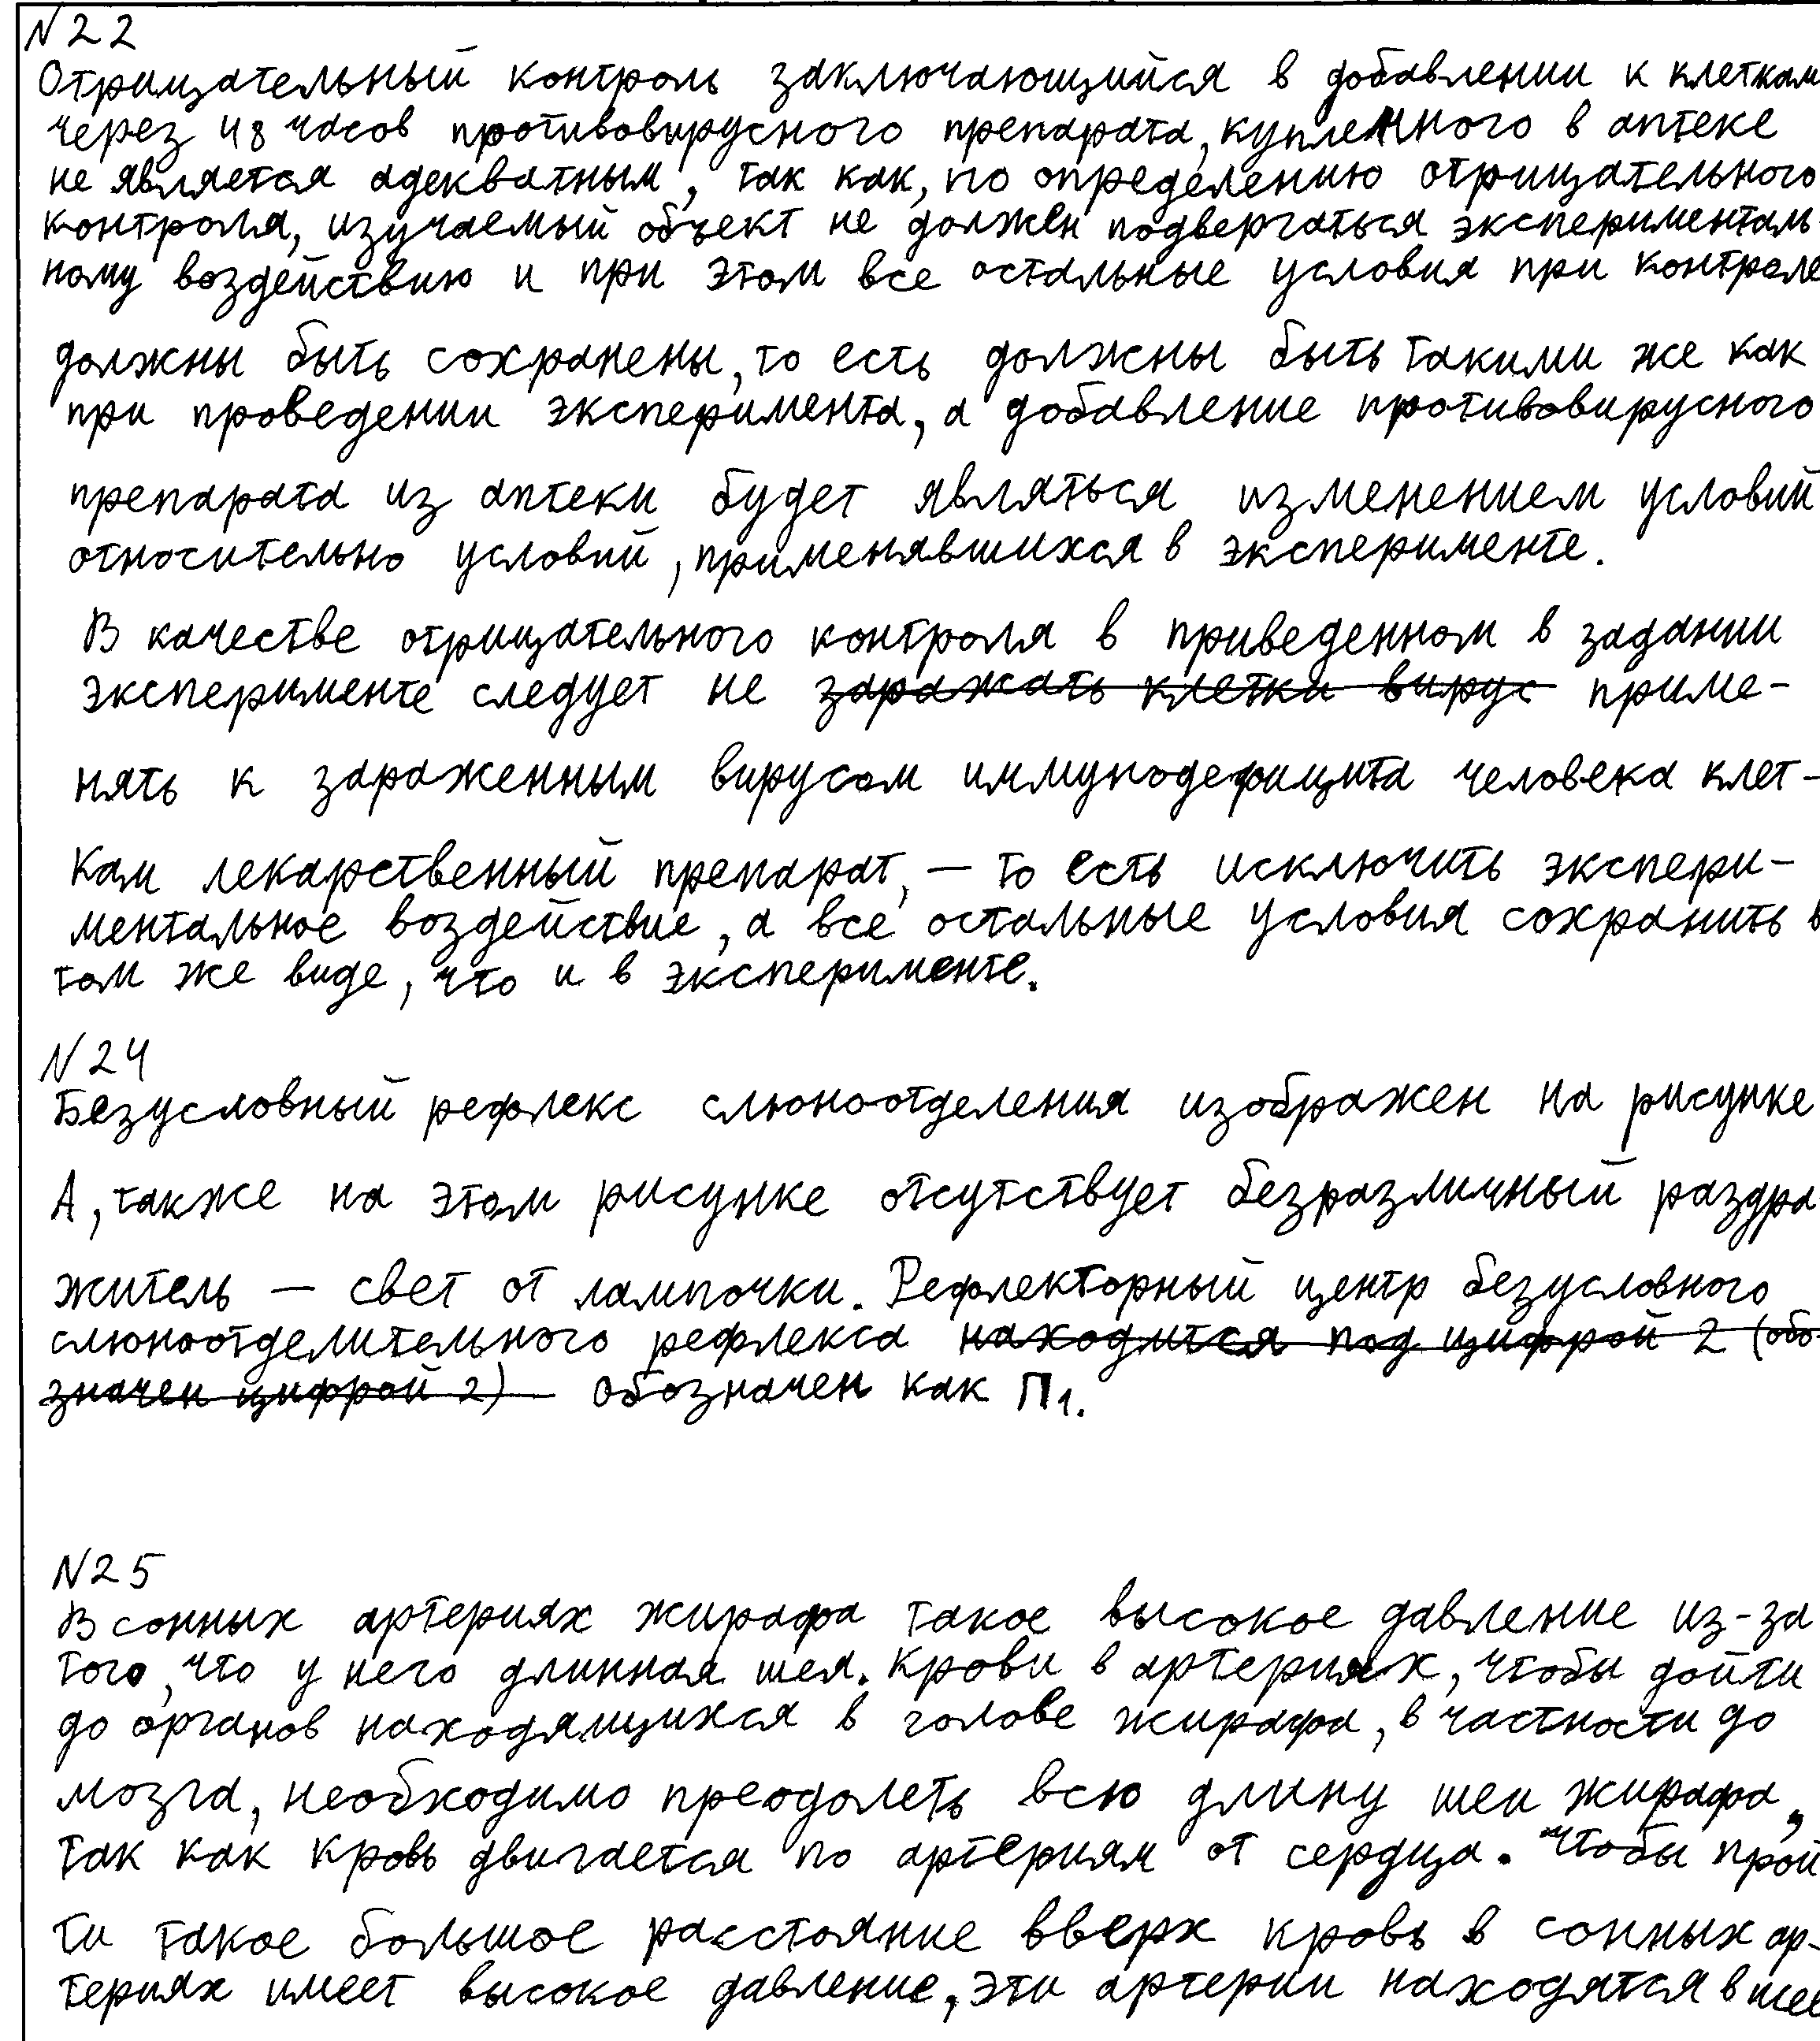 N22
Отрицательный контроль заключающийся в добавлении к клеткам
через 48 часов противовирусного препарата, купленного в аптеке
не является адекватным, так как, по определению отрицательного
контроля, изучаемый объект не должен подвергаться эксперименталь-
ному воздействию и при этом все остальные условия при контроле
должны быть сохранены, то есть должны быть такими же как
при проведении эксперимента, а добавление противовирусного
препарата из аптеки будет являться изменением условий
относительно условий, применявшихся в эксперименте.
В качестве отрицательного контроля в приведенном в задании
эксперименте следует не заражать клетки вирус приме-
нять к зараженным вирусом иммунодефицита человека клет-
кам лекарственный препарат, – то есть исключить экспери-
ментальное воздействие, а все остальные условия сохранить в
том же виде, что и в эксперименте.
N24
Безусловный рефлекс слюноотделения изображен на рисунке
А, также на этом рисунке отсутствует безразличный раздра
житель – свет от лампочки. Рефлекторный центр безусловного
слюноотделительного рефлекса находится под цифрой 2 (обо-
значен цифрой 2) обозначен как П1.
N25
В сонных артериях жирафа такое высокое давление из-за
того, что у него длинная шея. Крови в артериях, чтобы дойти
до органов находящихся в голове жирафа, в частности до
мозга, необходимо преодолеть всю длину шеи жирафа,
так как кровь двигается по артериям от сердца. Чтобы прой
ти такое большое расстояние вверх кровь в сонных ар-
териях имеет высокое давление, эти артерии находятся в шее